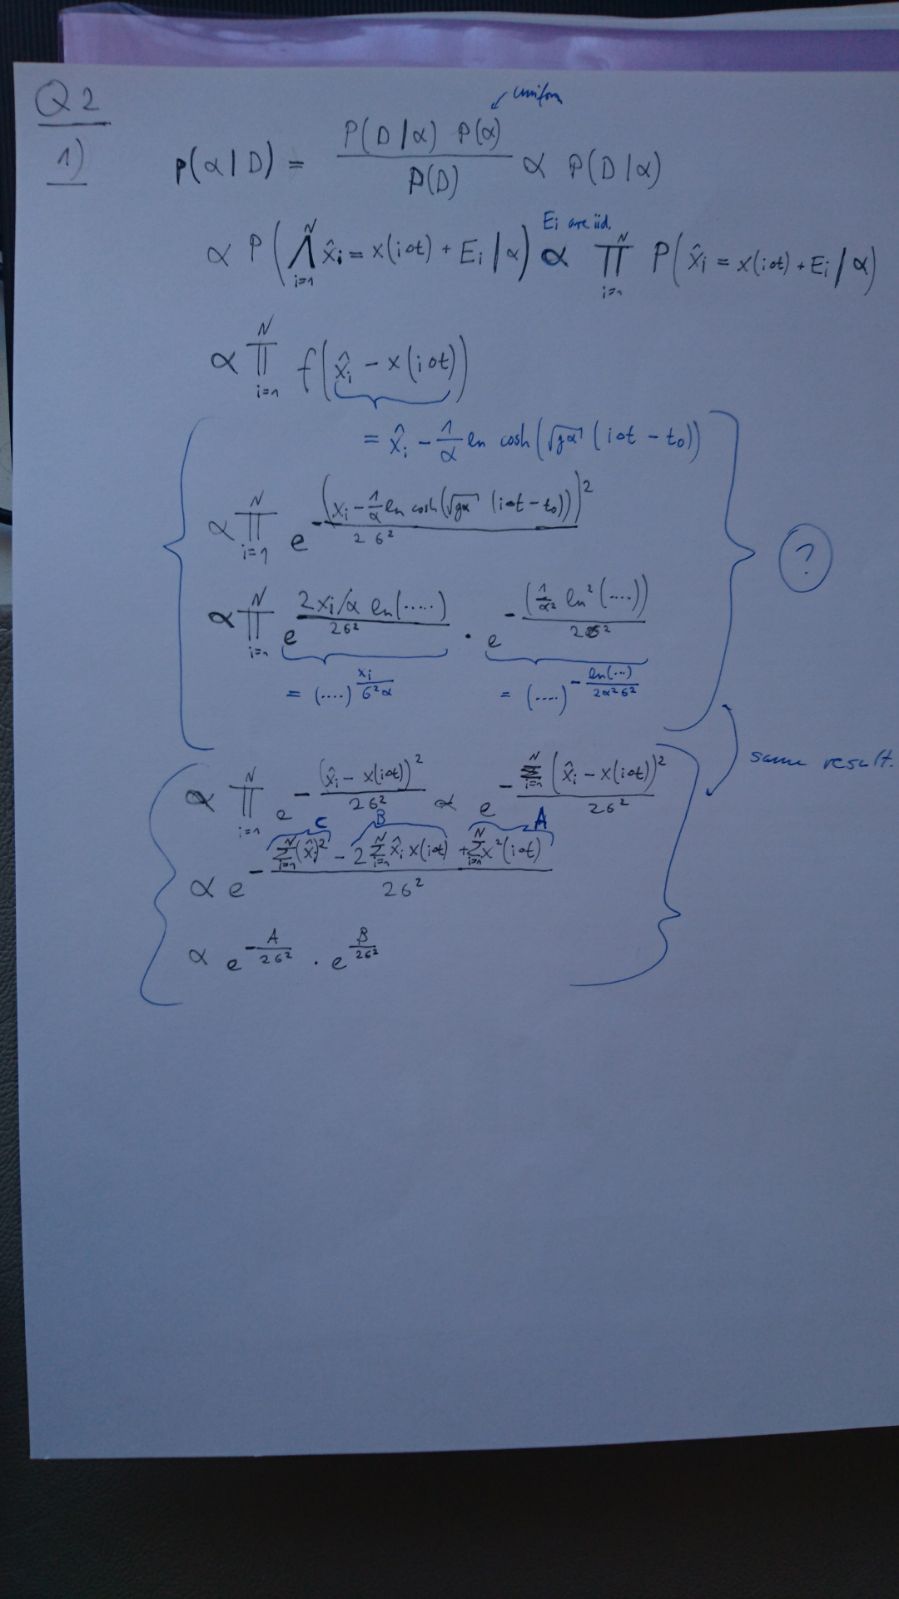 Q2
1)
← uniform
p(α|D) = P(D|α) P(α) / P(D) ∝ P(D|α)
Ei are iid.
∝ P( ⋀_{i=1}^{N} x̂i = x(iΔt) + Ei | α ) ∝ ∏_{i=1}^{N} P( x̂i = x(iΔt) + Ei | α )
∝ ∏_{i=1}^{N} f( x̂i − x(iΔt) )
= x̂i − 1/α ln cosh( √(gα) (iΔt − t0) )
∝ ∏_{i=1}^{N} e^{ −( xi − 1/α ln cosh( √(gα) (iΔt − t0) ) )² / 2σ² }
?
∝ ∏_{i=1}^{N} e^{ 2xi/α ln(.....) / 2σ² } · e^{ −( 1/α² ln²(....) ) / 2σ² }
= (....)^{ xi / σ²α }   = (....)^{ − ln(...) / 2α²σ² }
same result.
∝ ∏_{i=1}^{N} e^{ − (x̂i − x(iΔt))² / 2σ² } ∝ e^{ − Σ_{i=1}^{N} (x̂i − x(iΔt))² / 2σ² }
C B A
∝ e^{ − ( Σ_{i=1}^{N} (x̂i)² − 2 Σ_{i=1}^{N} x̂i x(iΔt) + Σ_{i=1}^{N} x²(iΔt) ) / 2σ² }
∝ e^{ − A / 2σ² } · e^{ B / 2σ² }